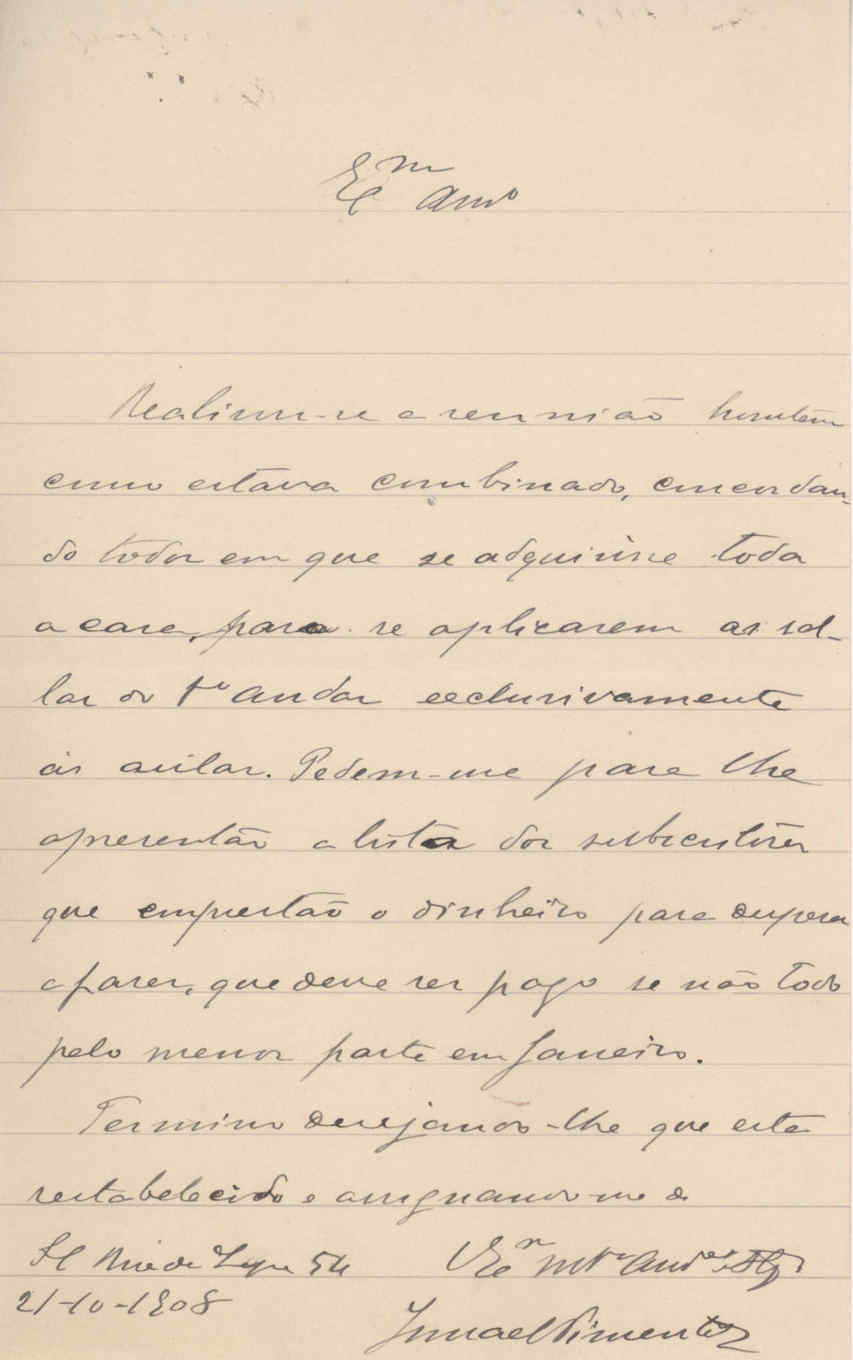 Ex.mo Amo
Realisou-se a reunião hontem
como estava combinado, concordan-
do todos em que se adquirisse toda
a casa, para se aplicarem as sal-
las do 1º andar exclusivamente
ás aulas. Pedem-me para lhe
apresentar a lista dos subscritores
que emprestão o dinheiro para despesa
a fazer, que deve ser pago se não todo
pelo menos parte em Janeiro.
Termino desejando-lhe que esteja
restabelecido e assignando-me de
54
21-10-1908
Ismael Pimentel